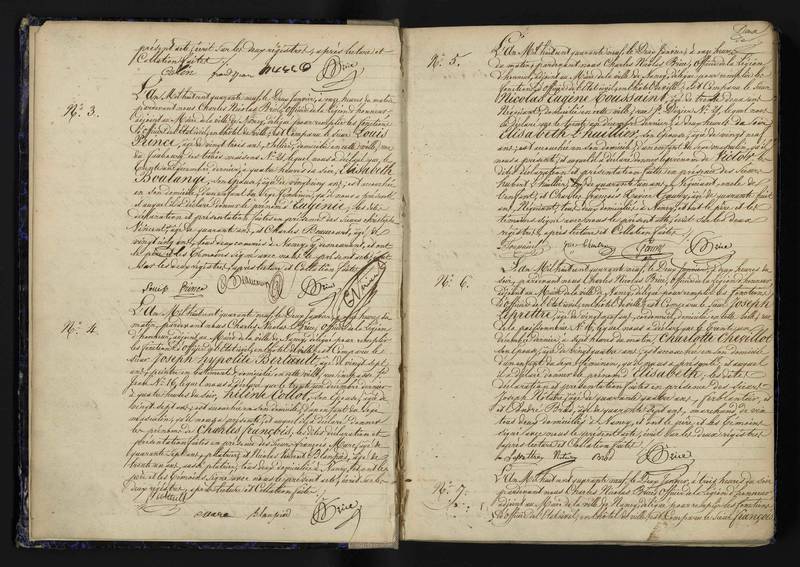 présent acte, écrit sur les deux registres, après lecture et
Collation faites
Brice
N.º 3.
L'An Mil huit cent quarante neuf, le Deux Janvier, à onze heures du matin
pardevant nous Charles Nicolas Brice, Officier de la Légion d'honneur,
adjoint au Maire de la ville de Nancy, délégué pour remplir les fonctions
d'officier de l'état civil, en l'hôtel de ville, Est Comparu le Sieur Louis
Prince, âgé de vingt trois ans, Sellier, domicilié en cette ville, rue
du faubourg des trois maisons Nº lequel nous a déclaré que, le
trente un décembre dernier, à quatre heures du soir, Elisabeth
Boulangé, Son épouse, âgée de vingt cinq ans, est accouchée
en son domicile, d'un enfant du sexe féminin, qu'il nous a présenté
et auquel il a déclaré donner le prénom d'Eugénie, les dites
déclaration et présentation faites en présence des Sieurs
Vincent, âgé de quarante ans, et Charles Beauconset, âgé de
vingt ans, tous deux de Nancy, y demeurant, et ont
le père et les témoins signé avec nous le présent acte, écrit
sur les deux registres, après lecture et Collation faites
Louis Prince
Brice
N.º 4.
L'An Mil huit cent quarante neuf, le Deux Janvier, à onze heures du
matin, pardevant nous Charles Nicolas Brice, Officier de la Légion
d'honneur, adjoint au Maire de la ville de Nancy, délégué pour remplir
les fonctions d'officier de l'état civil, en l'hôtel de ville, Est Comparu le
Sieur Joseph hypolite Bertault, âgé de vingt
ans, peintre en bâtiments, domicilié en cette ville,
Jean Nº 16, lequel nous a déclaré que, le trente un décembre dernier
à quatre heures du soir, hélène Collot, Son épouse, âgée de
vingt sept ans, est accouchée en son domicile, d'un enfant du sexe
masculin, qu'il nous a présenté, et auquel il a déclaré donner
les prénoms de Charles françois, les dites déclaration et
présentation faites en présence des Sieurs françois Mare, âgé de
quarante sept ans, platrier, et Nicolas Vincent Blampied, âgé de
trente un ans, aussi platrier, tous deux domiciliés à Nancy, et ont le
père et les témoins, signé avec nous le présent acte, écrit sur les
deux registres, après lecture et Collation faites
Bertault
mare Blampied Brice
Deux
N.º 5.
L'An Mil huit cent quarante neuf, le Deux Janvier, à onze heures
du matin, pardevant nous Charles Nicolas Brice, Officier de la Légion
d'honneur, adjoint au Maire de la ville de Nancy, délégué pour remplir les
fonctions d'officier de l'état civil, en l'hôtel de ville, Est Comparu le Sieur
Nicolas Eugène Toussaint, âgé de trente deux ans,
Négociant, domicilié en cette ville, rue St Dizier Nº lequel nous
a déclaré que, le trente un décembre dernier, à deux heures du soir
Elisabeth Lhuillier, Son épouse, âgée de vingt neuf
ans, est accouchée en son domicile, d'un enfant du sexe masculin, qu'il
nous a présenté, et auquel il a déclaré donner le prénom de Victor, les
dites déclaration et présentation faites en présence des Sieurs
hubert Lhuillier, âgé de quarante ans, Négociant, oncle de
l'enfant, et Charles françois Xavier âgé de quarante huit
ans, Négociant, tous deux domiciliés à Nancy, et ont le père et les
témoins signé avec nous le présent acte, écrit sur les deux
registres, après lecture et Collation faites
Toussaint Brice
N.º 6.
L'An Mil huit cent quarante neuf, le Deux Janvier, à deux heures du
soir, pardevant nous Charles Nicolas Brice, Officier de la Légion d'honneur,
adjoint au Maire de la ville de Nancy, délégué pour remplir les fonctions
d'officier de l'état civil, en l'hôtel de ville, Est Comparu le Sieur Joseph
Leprettre, âgé de vingt cinq ans, cordonnier, domicilié en cette ville, rue
de la poissonnerie Nº lequel nous a déclaré que, le trente un
décembre dernier, à sept heures du matin, Charlotte Chevillot
Son épouse, âgée de vingt quatre ans, est accouchée en son domicile
d'un enfant du sexe féminin, qu'il nous a présenté, et auquel il
a déclaré donner le prénom d'Elisabeth, les dites
déclaration et présentation faites en présence des Sieurs
Joseph âgé de quarante quatre ans, ferblantier, et
et André Brad, âgé de quarante sept ans, marchand de vin
tous deux domiciliés à Nancy, et ont le père, et les témoins
signé avec nous le présent acte, écrit sur les deux registres
après lecture et Collation faites
Brice
N.º 7.
L'An Mil huit cent quarante neuf, le Deux Janvier, à trois heures du soir
pardevant nous Charles Nicolas Brice, Officier de la Légion d'honneur
adjoint au Maire de la ville de Nancy, délégué pour remplir les fonctions
d'officier de l'état civil, en l'hôtel de ville, Est Comparu le Sieur françois